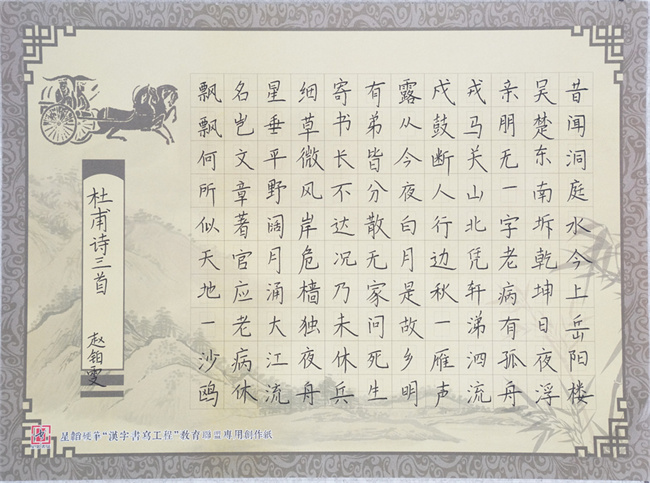 昔闻洞庭水今上岳阳楼
吴楚东南坼乾坤日夜浮
亲朋无一字老病有孤舟
戎马关山北凭轩涕泗流
戍鼓断人行边秋一雁声
露从今夜白月是故乡明
有弟皆分散无家问死生
寄书长不达况乃未休兵
细草微风岸危樯独夜舟
星垂平野阔月涌大江流
名岂文章著官应老病休
飘飘何所似天地一沙鸥
杜甫诗三首
赵铂雯
"漢字書寫工程"教育聯盟專用創作紙